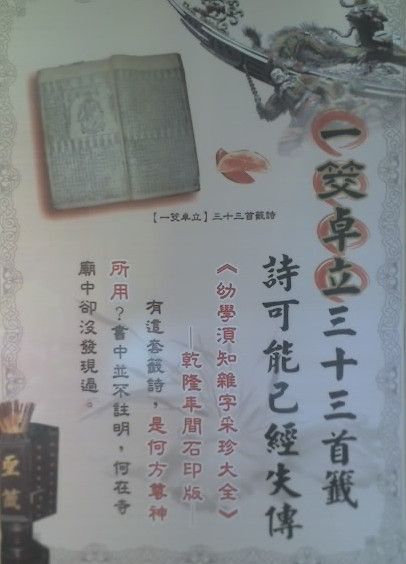 一筊卓立三十三首籤
詩可能已經失傳
【一筊卓立】三十三首籤詩
《幼學須知雜字采珍大全》
——乾隆年間石印版——
有這套籤詩，是何方尊神
所用？書中並不註明，何在寺
廟中卻沒發現過。
聖籤